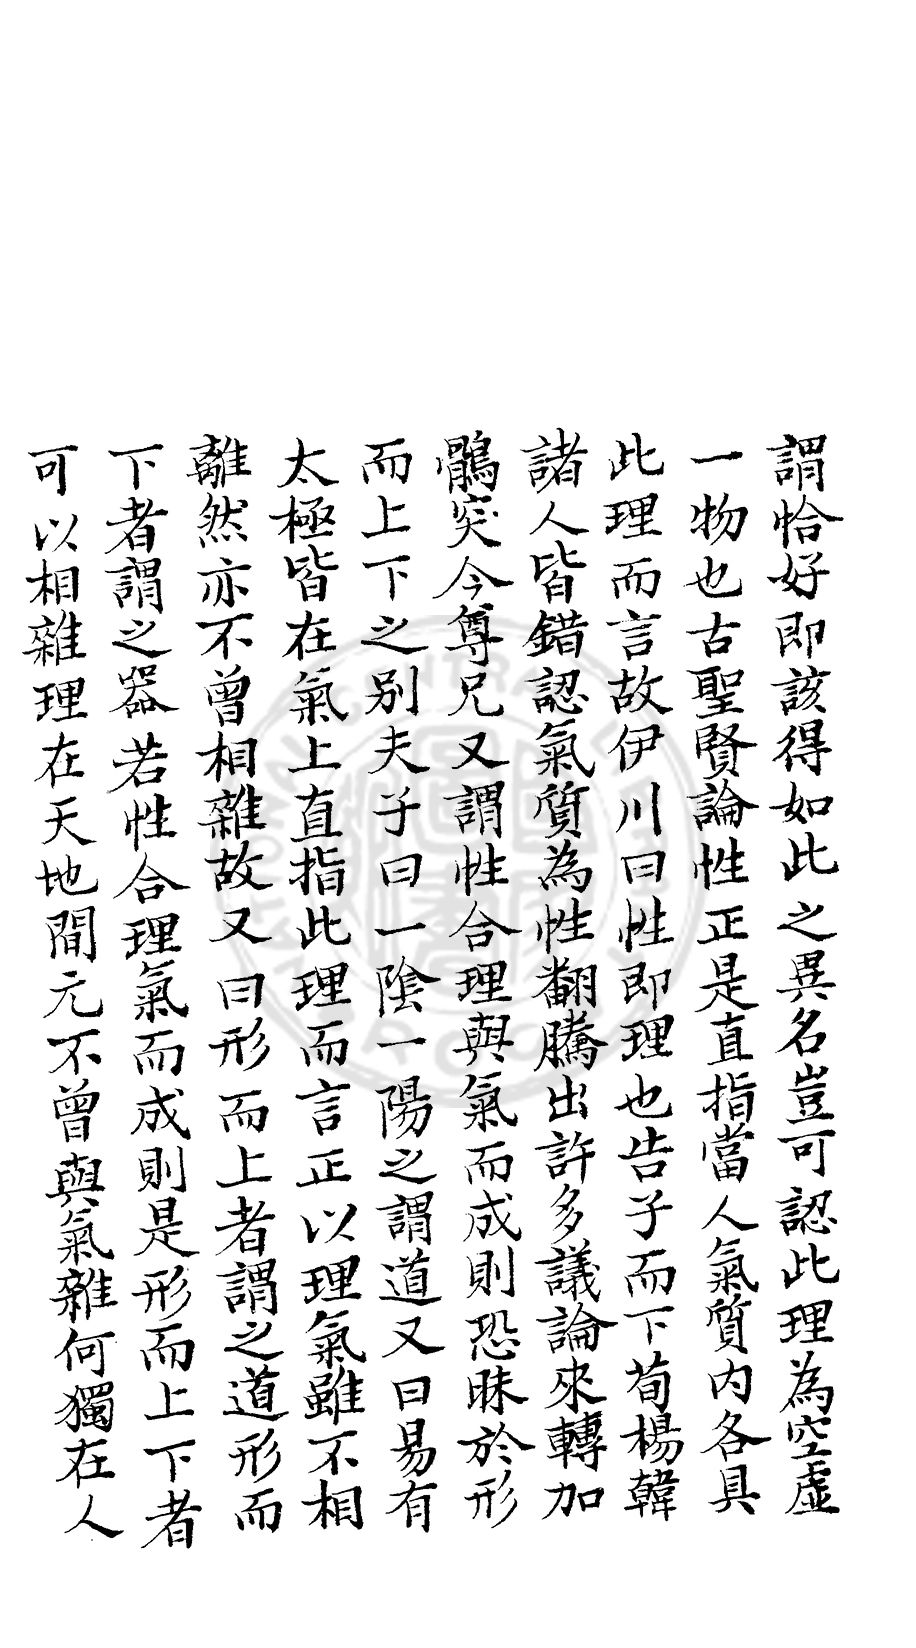 謂恰好即該得如此之異名豈可認此理為空虛
一物也古聖賢論性正是直指當人氣質內各具
此理而言故伊川曰性即理也告子而下荀楊韓
諸人皆錯認氣質為性翻騰出許多議論來轉加
鶻突今尊兄又謂性合理與氣而成則恐昧於形
而上下之別夫子曰一陰一陽之謂道又曰易有
太極皆在氣上直指此理而言正以理氣雖不相
離然亦不曾相雜故又曰形而上者謂之道形而
下者謂之器若性合理氣而成則是形而上下者
可以相雜理在天地間元不曾與氣雜何獨在人